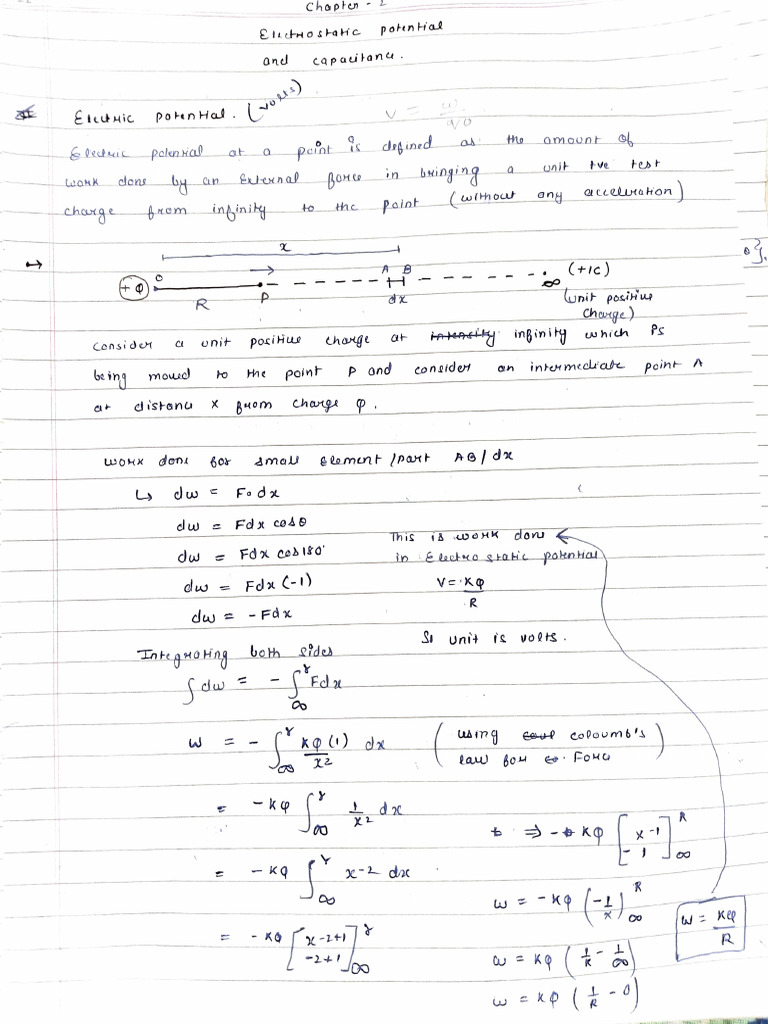 Chapter - 2
Electrostatic potential
and capacitance.
Electric potential. (volts)
V = w/q0
Electric potential at a point is defined as the amount of
work done by an External force in bringing a unit +ve test
charge from infinity to the point (without any acceleration)
x
+Q O R P A B dx ∞ (+1C)
(unit positive
charge)
Consider a unit positive charge at intensity infinity which is
being moved to the point P and consider an intermediate point A
at distance x from charge Q.
work done for small element/part AB/dx
↳ dw = F.dx
dw = Fdx cosθ
dw = Fdx cos180°
dw = Fdx (-1)
dw = -Fdx
This is work done
in Electrostatic potential
V = KQ/R
SI unit is volts.
Integrating both sides
∫dw = -∫_∞^r Fdx
w = -∫_∞^r KQ(1)/x2 dx (using coloumb's law for Force)
= -KQ ∫_∞^r 1/x2 dx
= -KQ ∫_∞^r x-2 dx
= -KQ [x-2+1/-2+1]_∞^r
⇒ - KQ [x-1/-1]_∞^R
w = -KQ (-1/x)_∞^R
w = KQ (1/R - 1/∞)
w = KQ (1/R - 0)
w = KQ/R